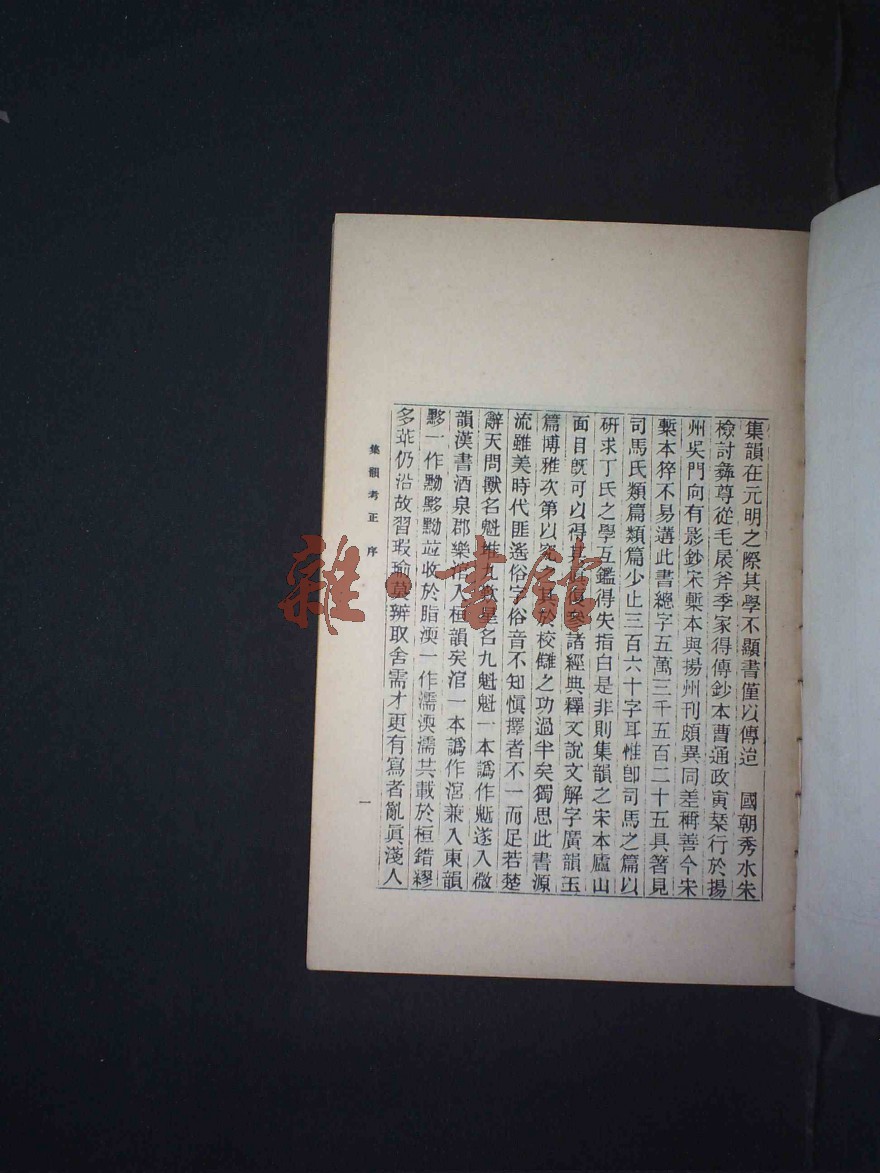 集韻在元明之際其學不顯書僅以傳迨　國朝秀水朱
檢討彝尊從毛扆斧季家得傳鈔本曹通政寅栞行於揚
州吳門向有影鈔宋槧本與揚州刊頗異同差稱善今宋
槧本猝不易遘此書緫字五萬三千五百二十五具箸見
司馬氏類篇類篇少止三百六十字耳惟卽司馬之篇以
硏求丁氏之學互鑑得失指白是非則集韻之宋本廬山
面目旣可以得其復矣諸經典釋文說文解字廣韻玉
篇博雅次第以究其於校讎之功過半矣獨思此書源
流雖美時代匪遙俗字俗音不知愼擇者不一而足若楚
辭天問獸名魁堆九歎星名九魁魁一本譌作魁遂入微
韻漢書酒泉郡樂涫入桓韻矣涫一本譌作涫兼入東韻
黟一作黝黟黝竝收於脂渜一作濡渜濡共載於桓錯繆
多茀仍沿故習瑕瑜莫辨取舍需才更有寫者亂眞淺人
集韻考正　序
一
雜·書館